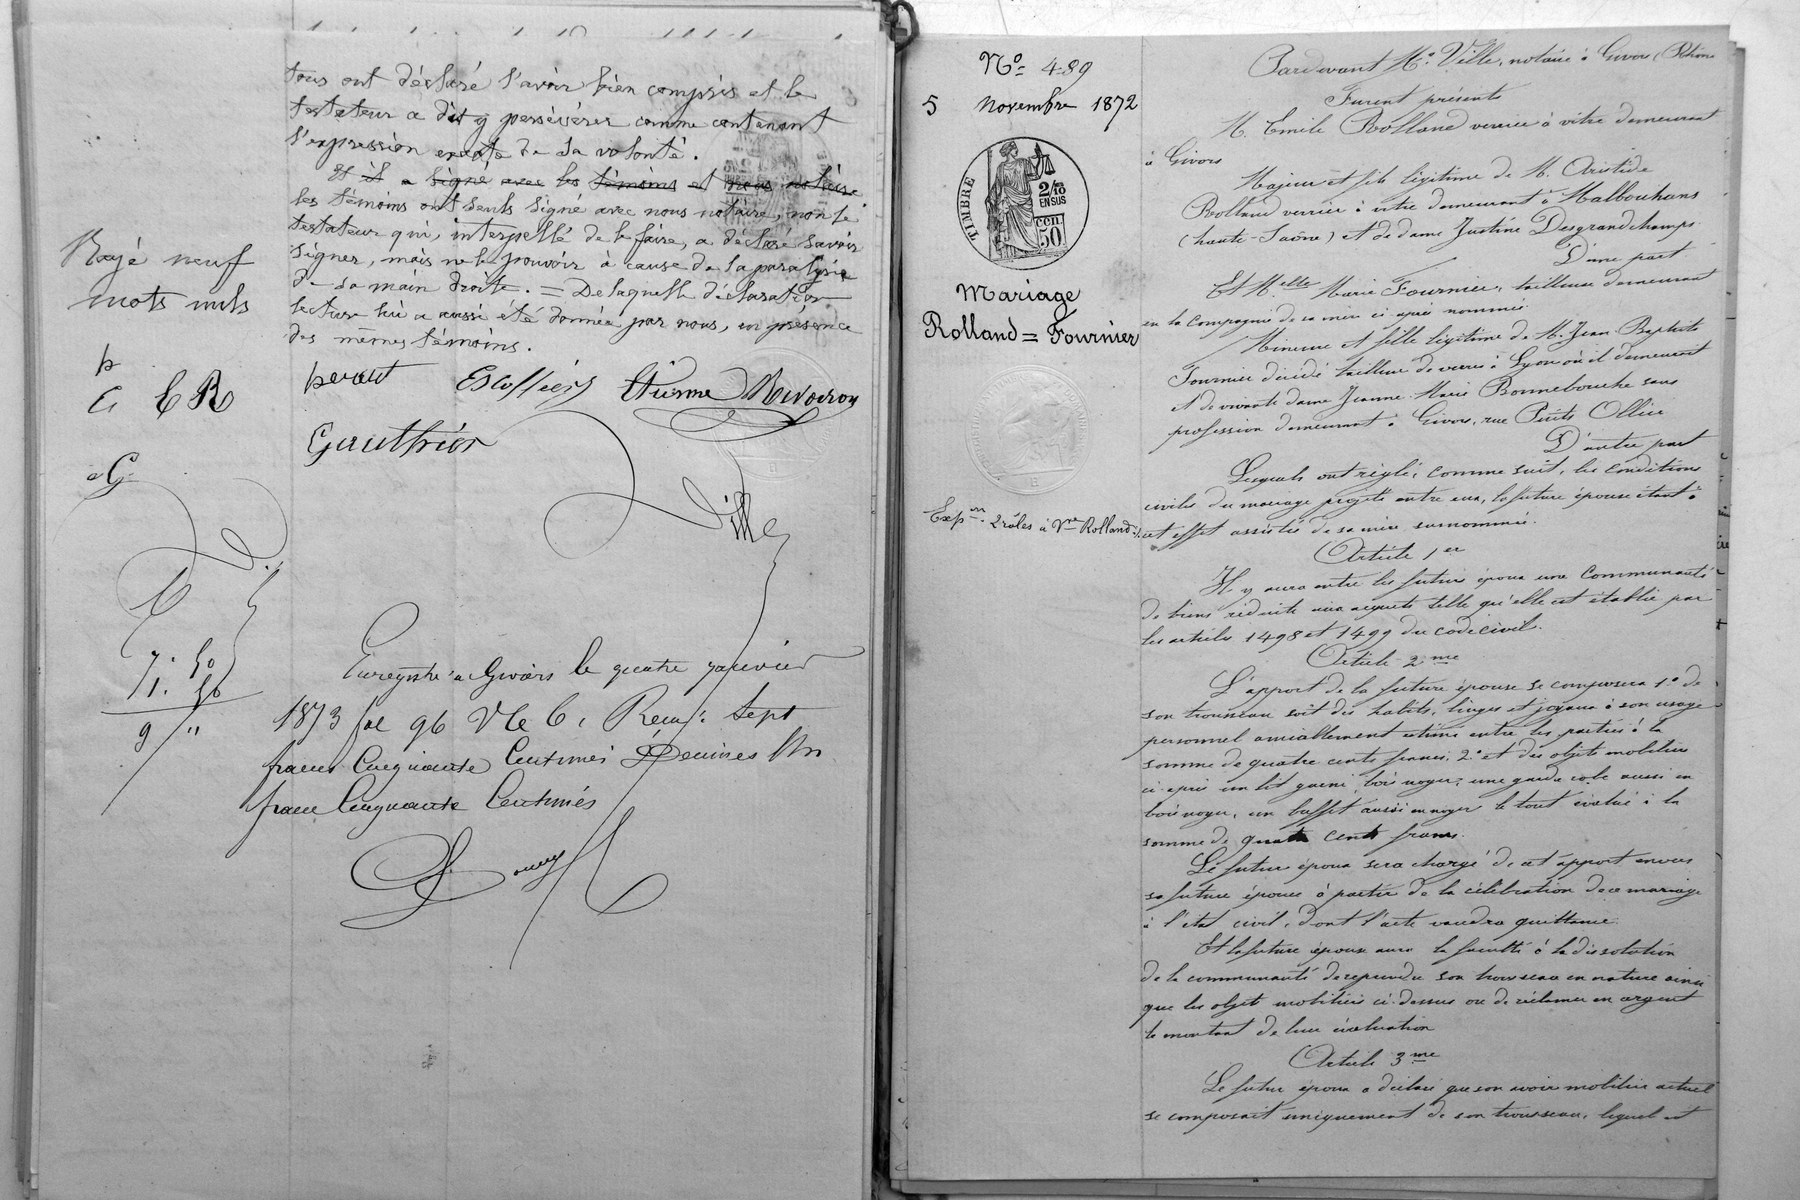 tous ont déclaré l'avoir bien compris et le
testateur a dit y persévérer comme contenant
l'expression exacte de sa volonté.
Et il a signé avec les témoins et nous notaire
les témoins ont seuls signé avec nous notaire, non le
testateur qui, interpellé de le faire, a déclaré savoir
signer, mais ne le pouvoir à cause de la paralysie
de sa main droite. = De laquelle déclaration
lecture lui a aussi été donnée par nous, en présence
des mêmes témoins.
Rayé neuf
mots nuls
p
E R
G
perout
Etienne
Gauthier
Ville
Enregistré à Givors le quatre janvier
1873 fol 96 Vo C 6. Reçu: Sept
francs Cinquante Centimes Décimes Un
franc Cinquante Centimes
7. 50
1. 50
9 "
No 489
5 Novembre 1872
TIMBRE
2/10
EN SUS
50 CEN.
Mariage
Rolland = Fournier
Expon 2 rôles à Vve Rolland
Pardevant Me Ville, notaire à Givors (Rhône
Furent présents
M. Emile Rolland verrier à vitre demeurant
à Givors
Majeur et fils légitime de M. Aristide
Rolland verrier à vitre demeurant à Malbouhans
(haute-Saône) et de dame Justine Desgrandchamps
D'une part
Et Melle Marie Fournier, tailleuse demeurant
en la Compagnie de sa mère ci après nommée
Mineure et fille légitime de M. Jean Baptiste
Fournier décédé tailleur de verres à Lyon où il demeurait
et de vivante dame Jeanne Marie Bonnebouche sans
profession demeurant à Givors, rue Puits Ollier
D'autre part
Lesquels ont réglé, comme suit, les conditions
civiles du mariage projeté entre eux, la future épouse étant à
cet effet assistée de sa mère surnommée.
Article 1er
Il y aura entre les futurs époux une Communauté
de biens réduite aux acquets telle qu'elle est établie par
les articles 1498 et 1499 du code civil.
Article 2me
L'apport de la future épouse se composera 1o de
son trousseau soit des habits, linges et joyaux à son usage
personnel amiablement estimé entre les parties à la
somme de quatre cents francs; 2o et des objets mobiliers
ci-après un lit garni, bois noyer; une garde robe aussi en
bois noyer, un buffet aussi en noyer le tout évalué à la
somme de quatre cents francs.
Le futur époux sera chargé de cet apport envers
sa future épouse à partir de la célébration de ce mariage
à l'état civil, dont l'acte vaudra quittance.
Et la future épouse aura la faculté à la dissolution
de la communauté de reprendre son trousseau en nature ainsi
que les objets mobiliers ci-dessus ou de réclamer en argent
le montant de leur évaluation
Article 3me
Le futur époux a déclaré que son avoir mobilier actuel
se composait uniquement de son trousseau, lequel est